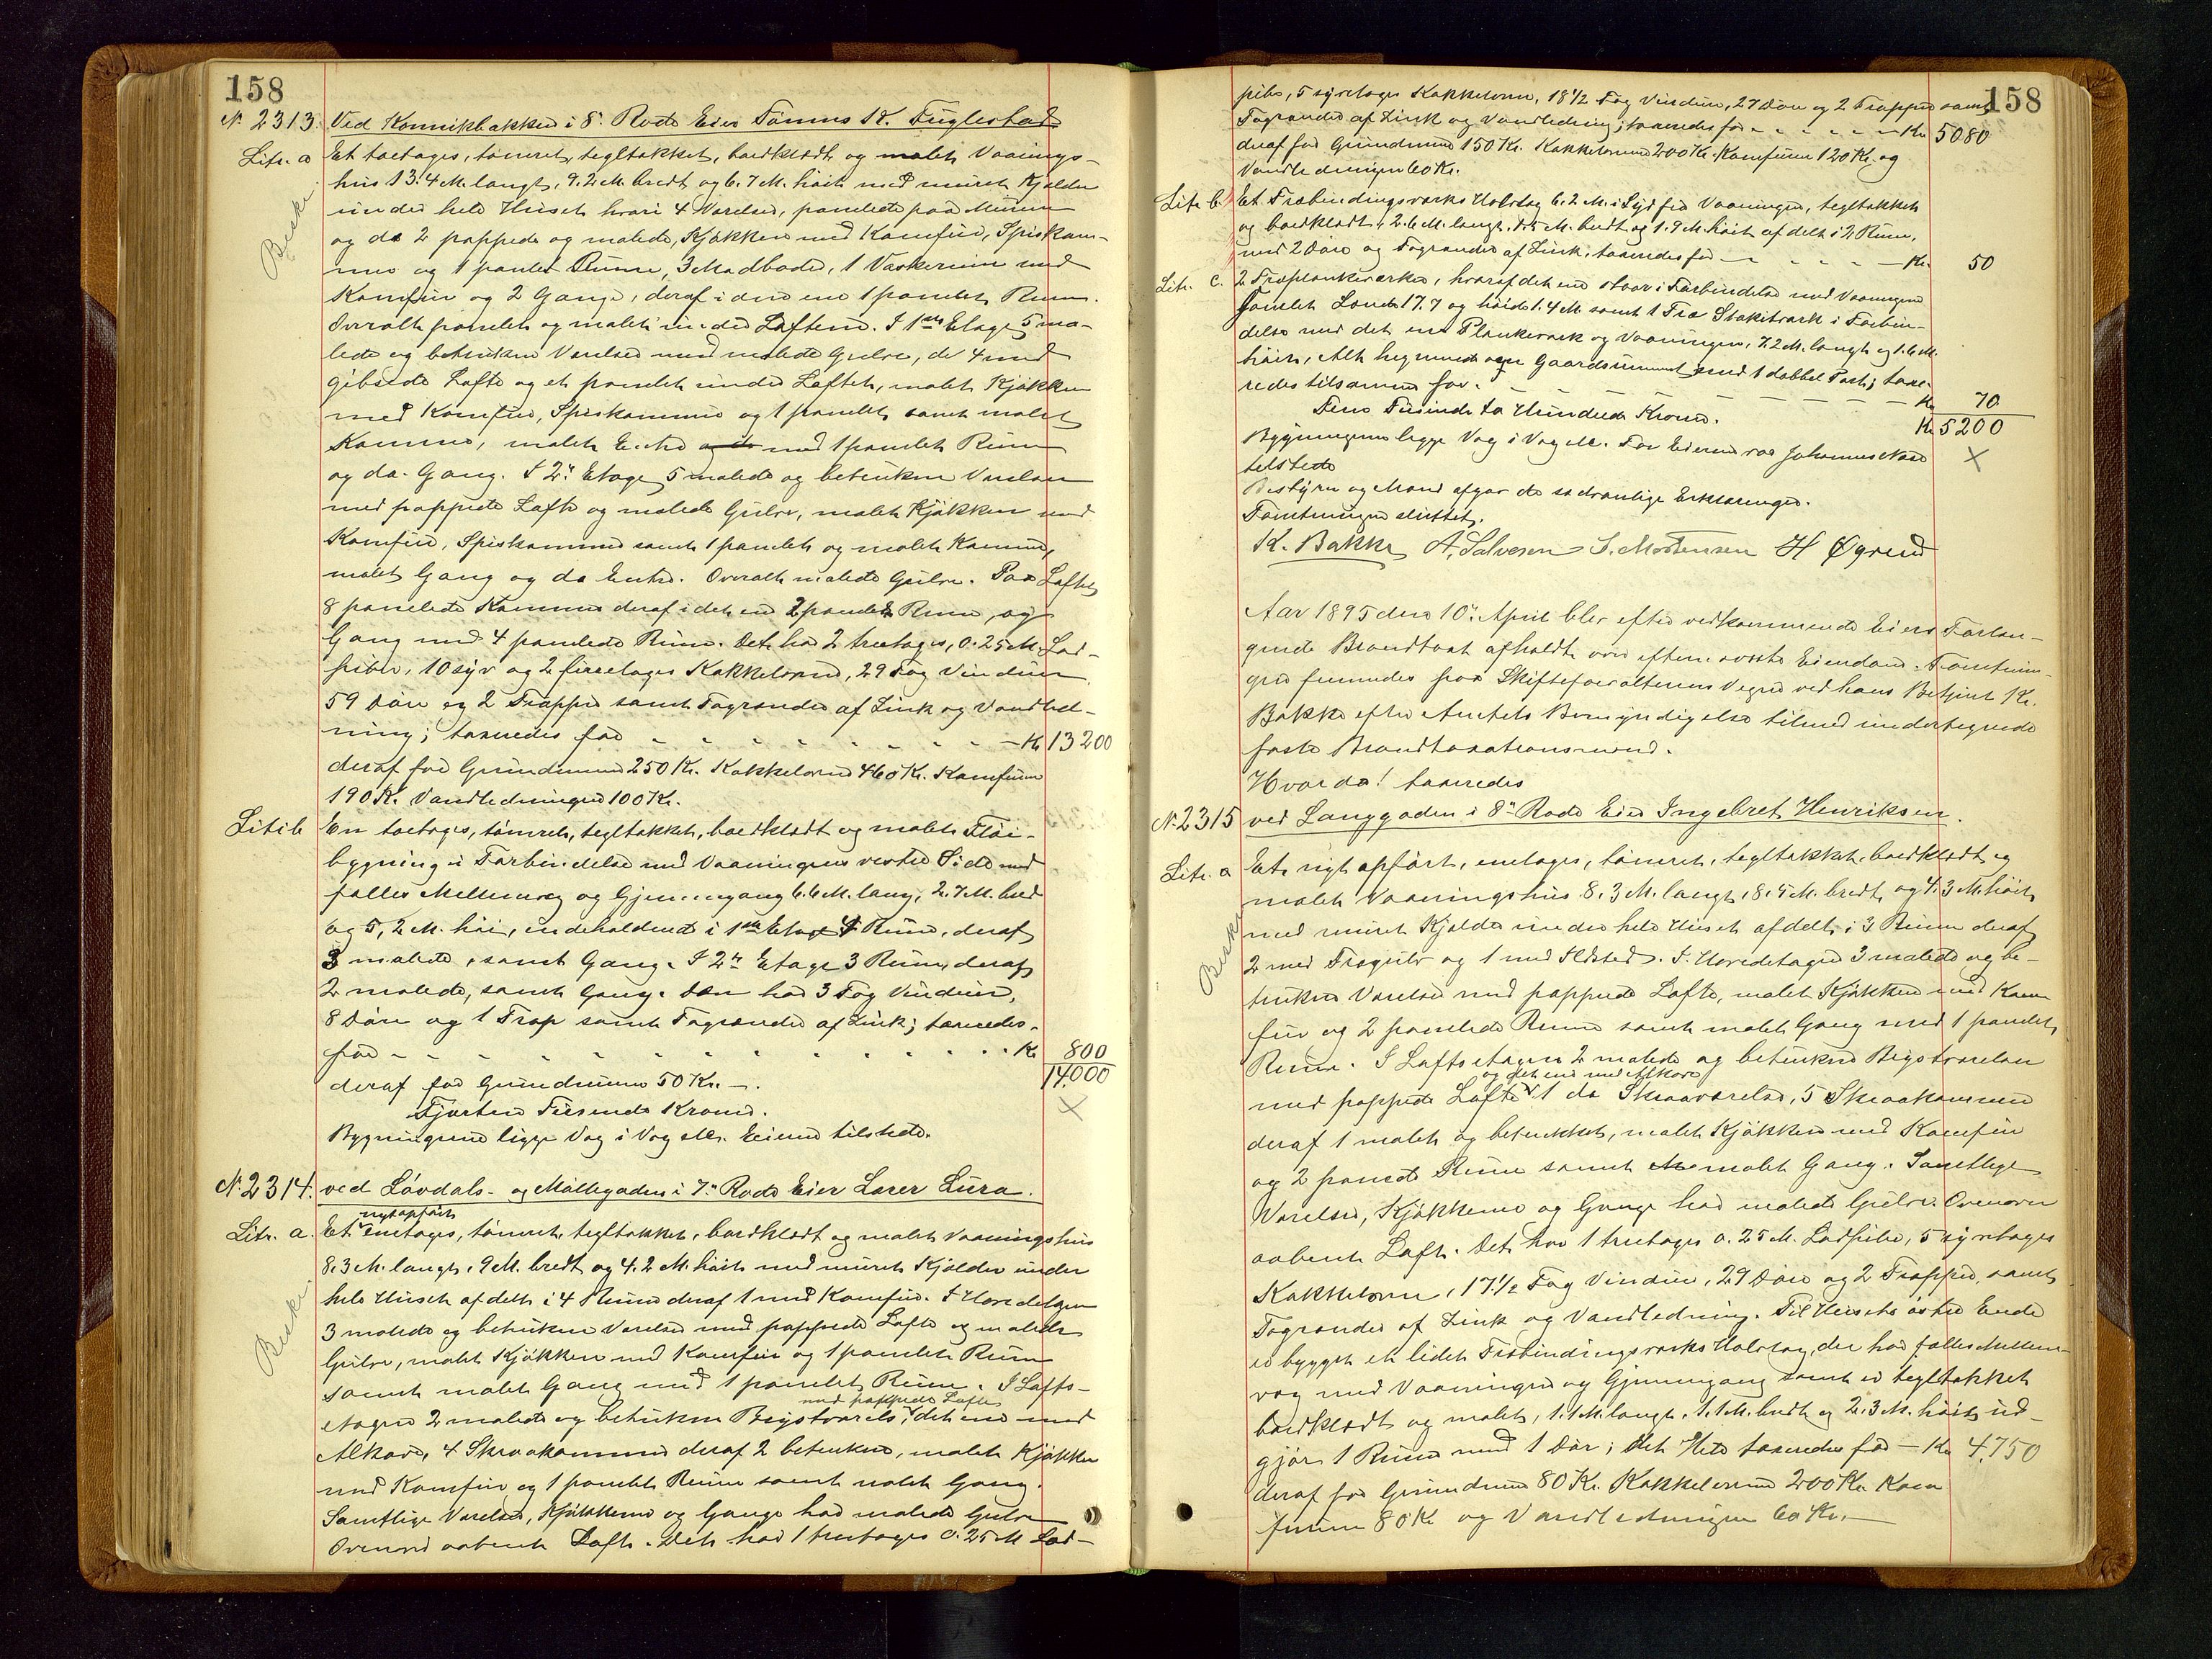 158
N. 2313. Ved Kannikbakken i 8. Rode Eier Tønnes K. Fuglestad
Litr. a Et toetages, tømret, tegltækket, bordklædt og malet Vaanings-
hus 13.4 M. langt, 9.2 M. bredt og 6.7 M. høit med muret Kjælder
under hele Huset hvori 4 Værelser, panelede paa Muren
og de 2 pappede og malede, Kjøkken med Komfur, Spiskam-
mer og 1 panelet Rum, 3 Madboder, 1 Vaskerum med
Komfur og 2 Gange, deraf i den ene 1 panelet Rum.
Overalt panelet og malet under Loftene. I 1ste Etage 5 ma-
lede og betrukne Værelser med malede Gulve, de 4 med
gibsede Lofte og et panelet under Loftet, malet Kjøkken
med Komfur, Spiskammer og 1 panelet samt malet
Kammer, malet Entre med 1 panelet Rum
og do. Gang. I 2n Etage 5 malede og betrukne Værelser
med pappede Lofte og malede Gulve, malet Kjøkken med
Komfur, Spiskammer samt 1 panelet og malet Kammer,
malet Gang og do Entre. Overalt malede Gulve. Paa Loftet
8 panelede Kammere deraf i det ene 2 panelede Rum, og
Gang med 4 panelede Rum. Det har 2 treetages, 0.25 M. Lod-
piber, 10 syv og 2 fireetages Kakkelovne, 29 Fag Vinduer
59 Døre og 2 Trapper samt Tagrender af Zink og Vandled-
ning; taxeredes for - - - - - - - Kr 13200
deraf for Grundmuren 250 Kr. Kakkelovne 460 Kr. Komfurene
190 Kr. Vandledningen 100 Kr.
Litr. b En toetages, tømret, tegltækket, bordklædt og malet Fløi-
bygning i Forbindelse med Vaaningens vestre Side med
fælles Mellemvæg og Gjennemgang 6.6 M. lang, 2.7 M. bred
og 5,2 M. høi, indeholdende i 1ste Etage 4 Rum, deraf
3 malede, samt Gang. I 2n Etage 3 Rum, deraf
2 malede, samt Gang. Den har 3 Fag Vinduer,
8 Døre og 1 Trap samt Tagrender af Zink; taxeredes
for - - - - - - - - - - - Kr 800
deraf for Grundmuren 50 Kr. - . 14.000
Fjorten Tusende Kroner. X
Bygningerne ligge Væg i Væg etc. Eieren tilstede.
N. 2314. ved Løvdals- og Møllegaden i 7. Rode Eier Lærer Lura.
nyt opført
Litr. a. Et enetages, tømret, tegltækket, bordklædt og malet Vaaningshus
8.3 M. langt, 9 M. bredt og 4.2 M. høit med muret Kjælder under
hele Huset afdelt i 4 Rum deraf 1 med Komfur. I Hovedetagen
3 malede og betrukne Værelser med pappede Lofte og malede
Gulve, malet Kjøkken med Komfur og 1 panelet Rum
samt malet Gang med 1 panelet Rum. I Lofts-
med pappede Lofte
etagen 2 malede og betrukne Kvistværels, det ene med
Alkove, 4 Skraakammere deraf 2 betrukne, malet Kjøkken
med Komfur og 1 panelet Rum samt malet Gang.
Samtlige Værelser, Kjøkkenene og Gange har malede Gulve
Ovenover aabent Loft. Det har 1 treetages 0.25 M Lod-
158
pibe, 5 syvetages Kakkelovne, 18 1/2 Fag Vinduer, 27 Døre og 2 Trapper samt
Tagrender af Zink og Vandledning; taxeredes for - - - - - Kr 5080
deraf for Grundmuren 150 Kr. Kakkelovnene 200 Kr. Komfurene 120 Kr. og
Vandledningen 60 Kr.
Litr. b. Et Træbindingsværks Udbyg 6.2 M. i Syd fra Vaaningen, tegltækket
og bordklædt, 2.6 M. langt, 1.5 M. bredt og 1.9 M. høit afdelt i 2 Rum,
med 2 Døre og Tagrender af Zink, taxeredes for - - - - - Kr. 50
Litr. c. 2 Træplankeværker, hvoraf det ene staar i Forbindelse med Vaaningen
Samlet Længde 17.7 og høide 1.4 M. samt 1 Træ Stakitværk i Forbin-
delse med det ene Plankeværk og Vaaningen, 7.2 M. langt og 1.6 M.
høit, Alt begrændser Gaardsrummet med 1 dobbel Port; taxe-
redes tilsammen for. - - - - - - - Kr 70
Fem Tusinde to Hundrede Kroner. Kr 5200
Bygningerne ligge Væg i Væg etc. For Eieren var Johannes Næse X
tilstede
Bestyrer og Mænd afgav de sædvanlige Erklæringer.
Forretningen sluttet.
K. Bakke A. Salvesen S. Mortensen H Øgreid
Aar 1895 den 10. April blev efter vedkommende Eiers Forlan-
gende Brandtaxt afholdt over efternævnte Eiendom. Forretnin-
gen fremmedes paa Skifteforvalterens Vegne ved hans Betjent K.
Bakke efter Amtets Bemyndigelse tilmed undertegnede
faste Brandtaxationsmænd.
Hvorda! taxeredes
N. 2315 ved Langgaden i 8n Rode Eier Ingebret Henriksen.
Litr. a Et nyt opført, enetages, tømret, tegltækket, bordklædt og
malet Vaaningshus 8.3 M. langt, 8.5 M. bredt og 4.3 M. høit
med muret Kjælder under hele Huset afdelt i 3 Rum deraf
2 med Trægulv og 1 med Ildsted. I Hovedetagen 3 malede og be-
trukne Værelser med pappede Lofte, malet Kjøkken med Kom-
fur og 2 panelede Rum samt malet Gang med 1 panelet
Rum. I Loftsetagen 2 malede og betrukne Kvistværelser
og det ene med Alkove
med pappede Lofte 1 do Skraaværelse, 5 Skraakammere
deraf 1 malet og betrukket, malet Kjøkken med Komfur
og 2 panelede Rum samt malet Gang. Samtlige
Værelser, Kjøkkenene og Gange har malede Gulve. Ovenover
aabent Loft. Det har 1 treetages 0.25 M. Lodpibe, 5 syvetages
Kakkelovne, 17 1/2 Fag Vinduer, 29 Døre og 2 Trapper, samt
Tagrender af Zink og Vandledning. Til Husets østre Ende
er bygget et lidet Træbindingsværks Udbyg, der har fælles Mellem-
væg med Vaaningen og Gjennemgang samt er tegltækket
bordklædt og malet, 1.1 M. langt, 1.1 M. bredt og 2.3 M. høit, ud-
gjør 1 Rum med 1 Dør; det Hele taxeredes for - Kr 4,750
deraf for Grundmuren 80 Kr. Kakkelovne 200 Kr. Kom-
furene 80 Kr og Vandledningen 60 Kr. -